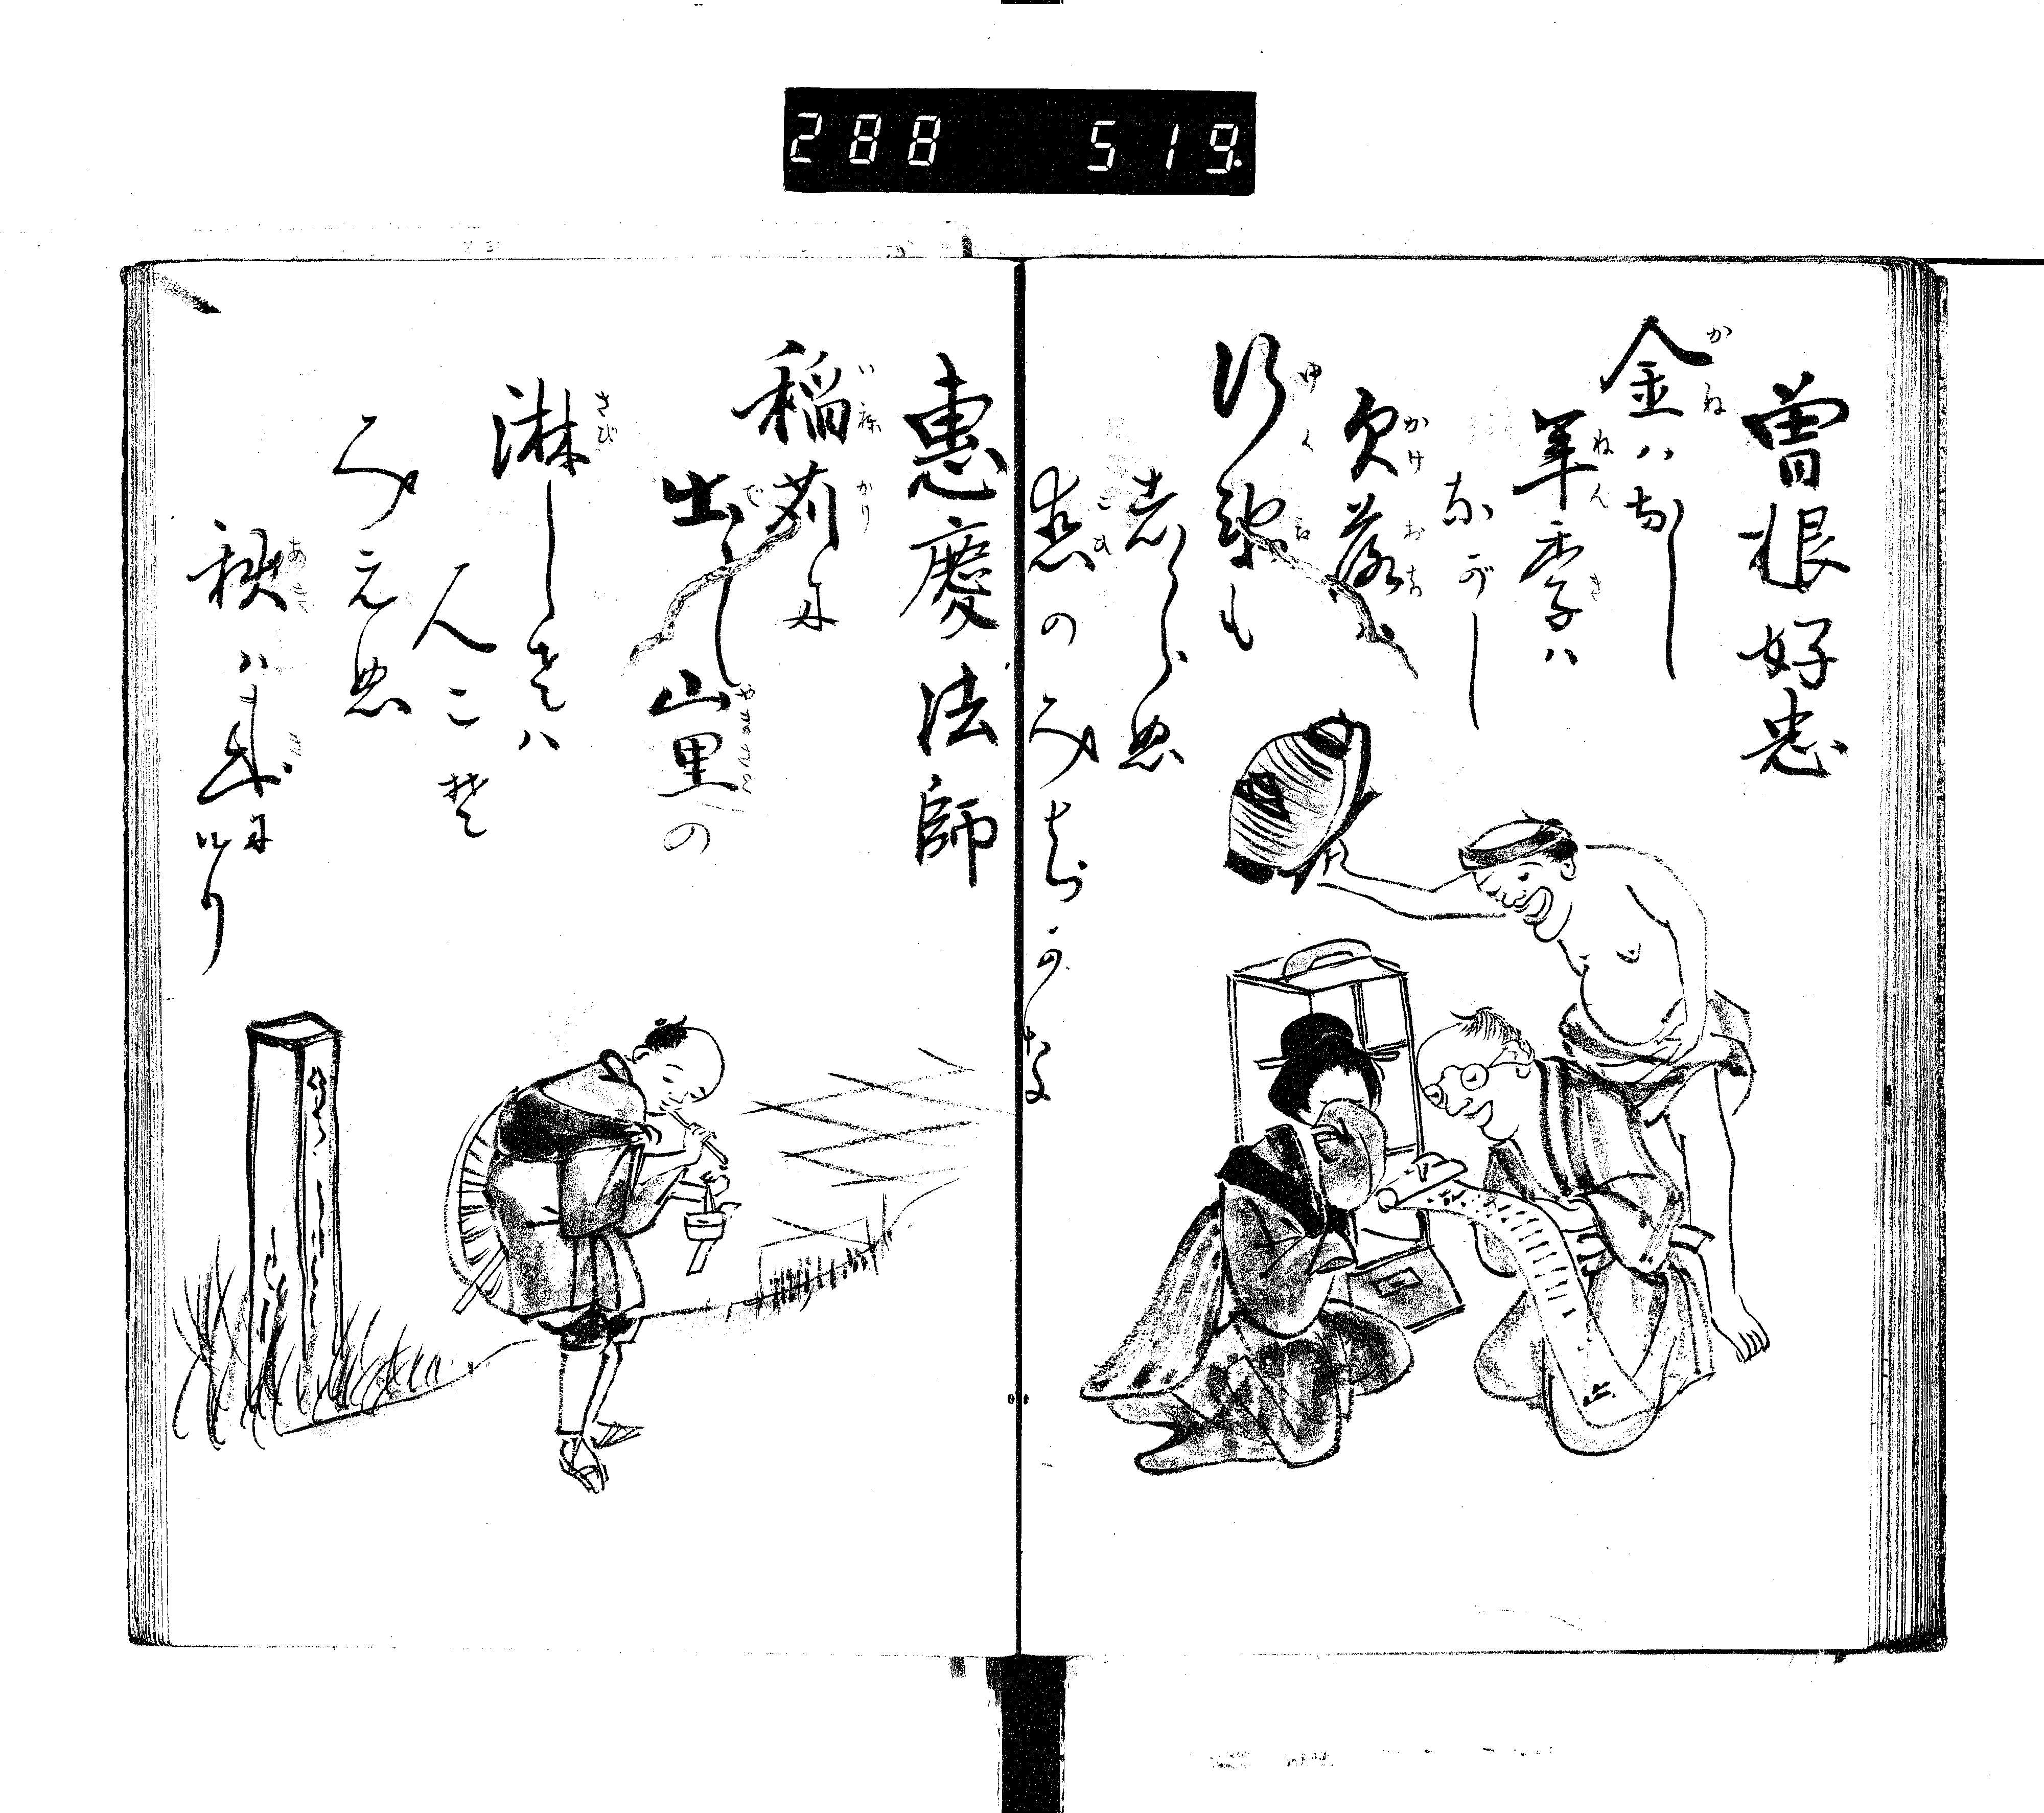 288 519.
曽根好忠
金ハなし
年季ハ
ながし
欠落
行衛も
しらぬ
恋のみちかな
恵慶法師
稲苅に
出し山里の
淋しさハ
人こそ
みえぬ
秋ハ来にけり